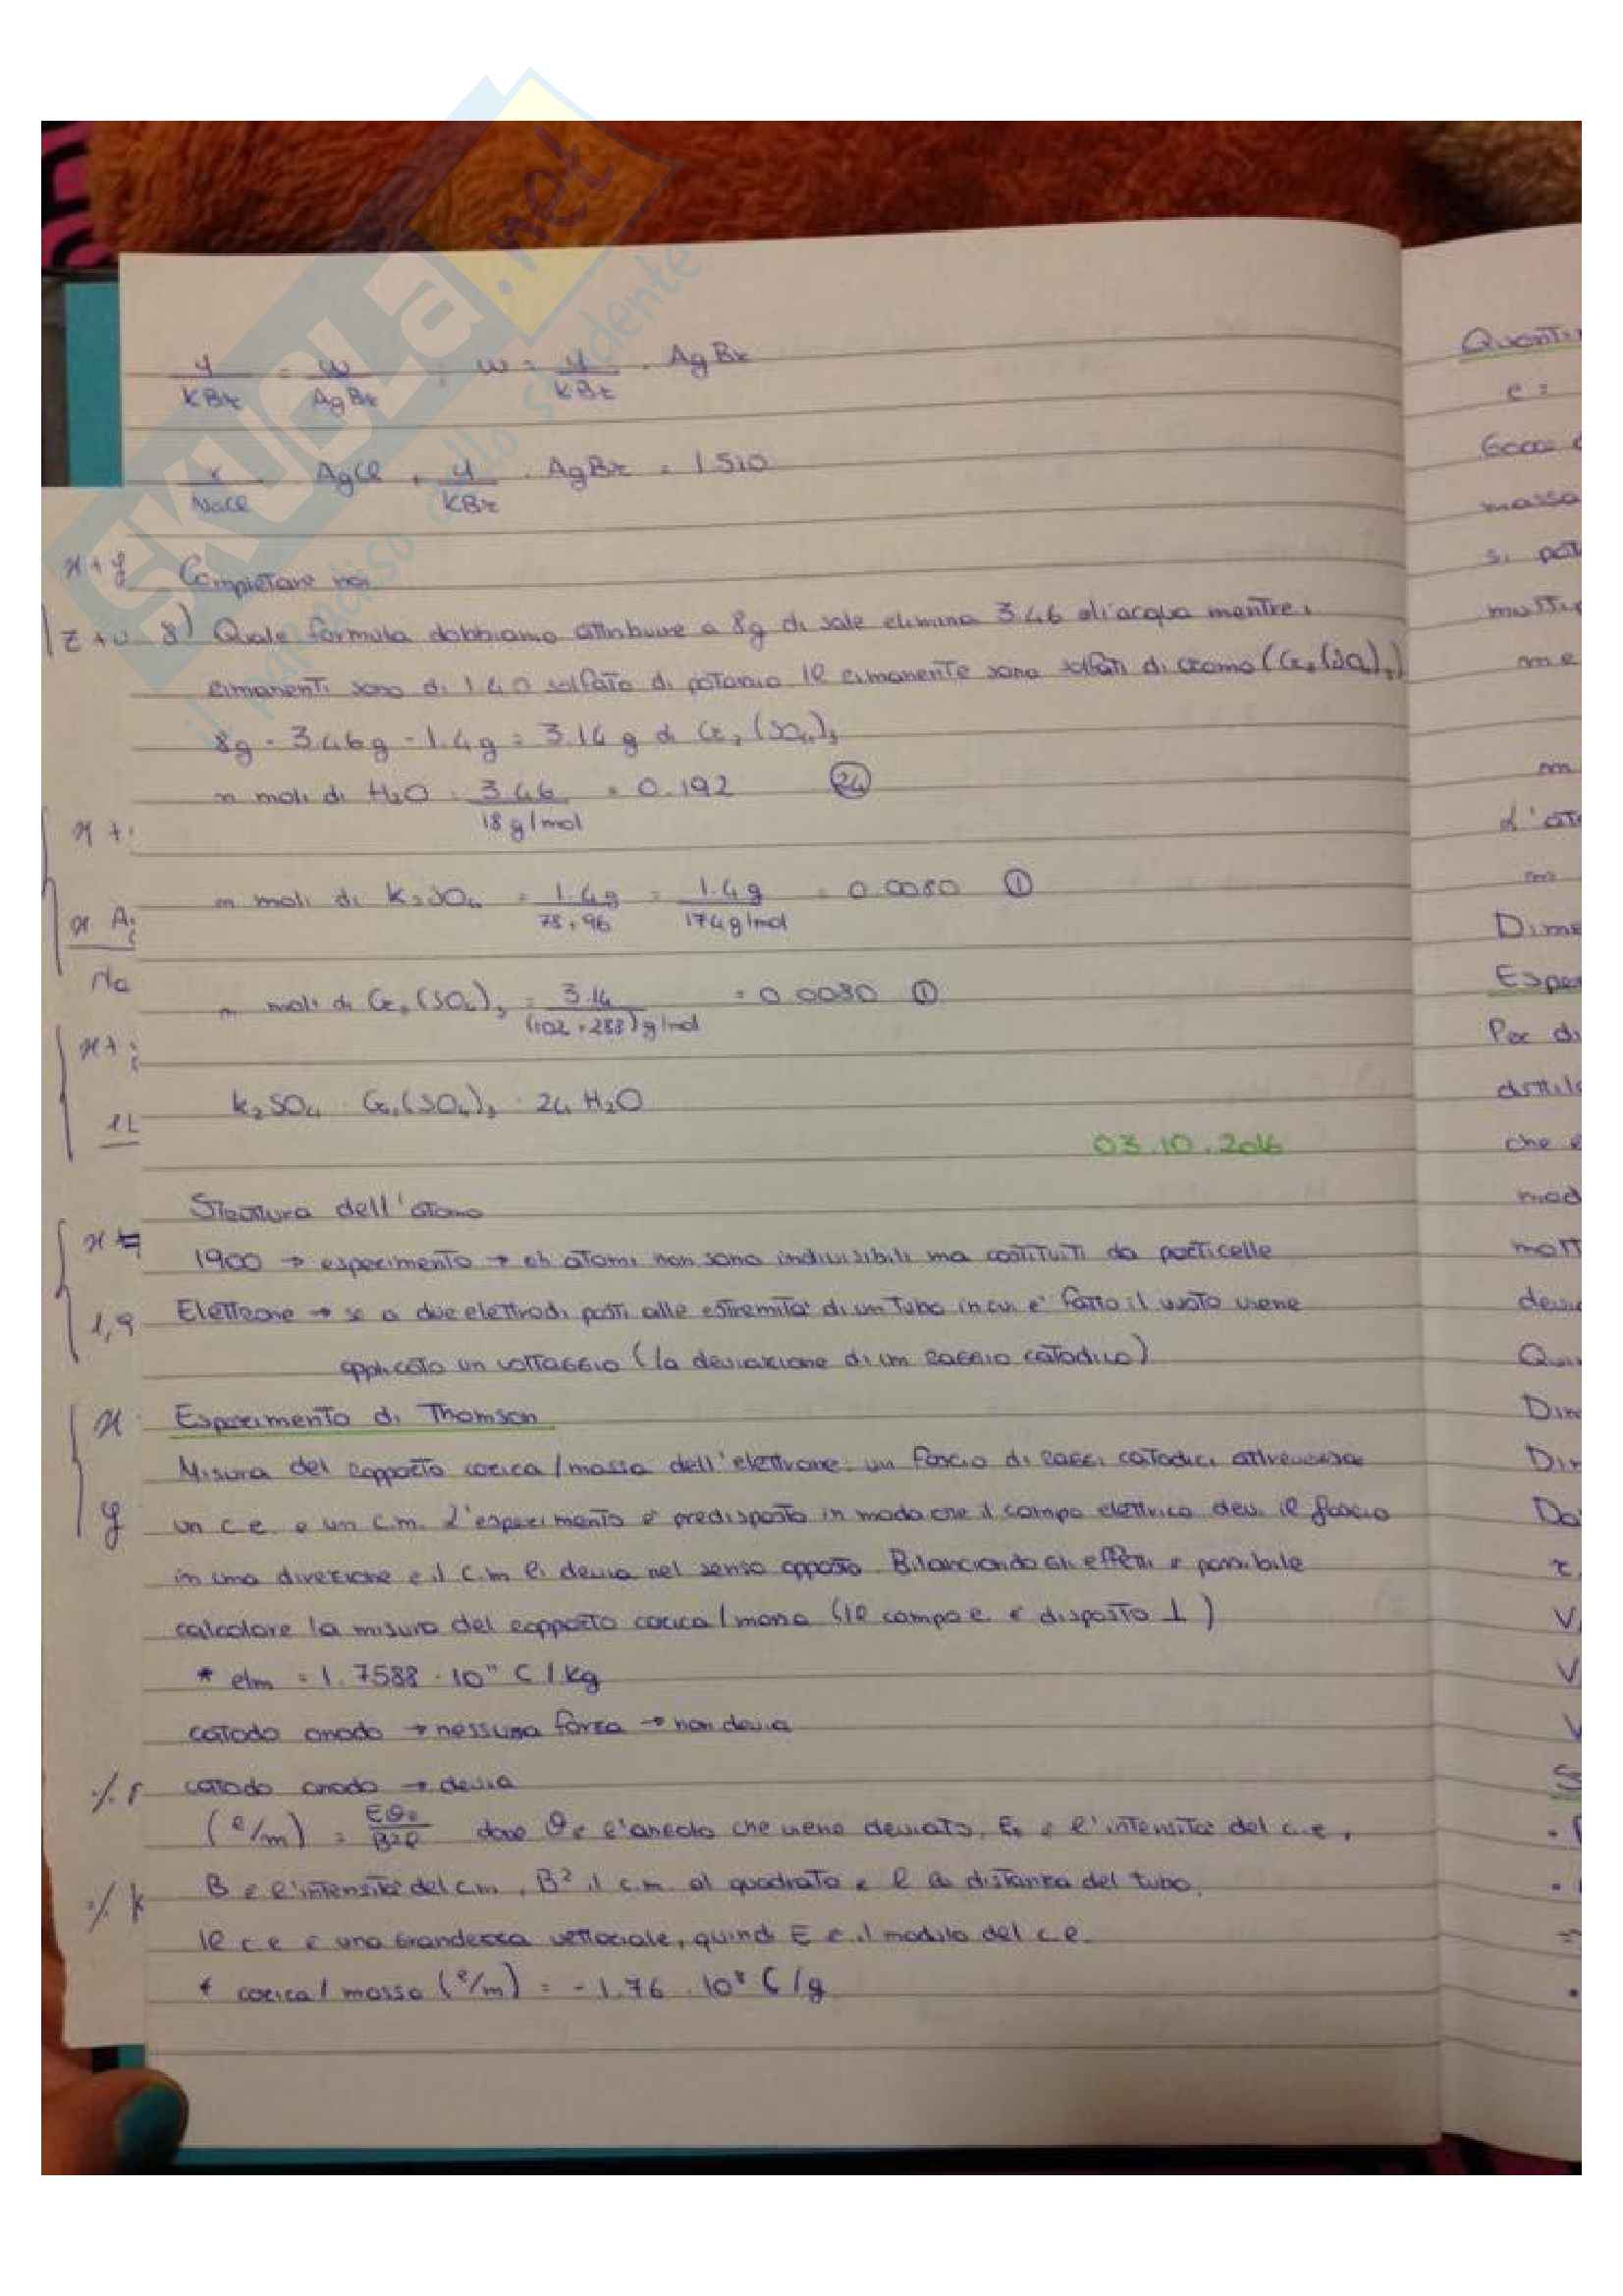 SKUOLa.net
il paradiso dello studente
y/KBr = w/AgBr ; w = y/KBr . AgBr
x/NaCl . AgCl + y/KBr . AgBr = 1.510
Completare noi
8) Quale formula dobbiamo attribuire a 8g di sale elimina 3.46 di acqua mentre i
rimanenti sono di 1.40 solfato di potassio il rimanente sono solfati di cromo (Cr2(SO4)3)
8g - 3.46g - 1.4g = 3.14 g di Cr2(SO4)3
n moli di H2O = 3.46/18 g/mol = 0.192 (24)
n moli di K2SO4 = 1.4g/78+96 = 1.4g/174g/mol = 0.0080 (1)
n moli di Cr2(SO4)3 = 3.14/(102+288)g/mol = 0.0080 (1)
K2SO4 . Cr2(SO4)3 . 24 H2O
03.10.2016
Struttura dell'atomo
1900 → esperimento → gli atomi non sono indivisibili ma costituiti da particelle
Elettrone → se a due elettrodi posti alle estremità di un tubo in cui e' fatto il vuoto viene
applicato un voltaggio (la deviazione di un raggio catodico)
Esperimento di Thomson
Misura del rapporto carica/massa dell'elettrone: un fascio di raggi catodici attraversa
un c.e. e un c.m. L'esperimento è predisposto in modo che il campo elettrico devi il fascio
in una direzione e il c.m li devia nel senso opposto. Bilanciando gli effetti è possibile
calcolare la misura del rapporto carica/massa (il campo e. è disposto ⊥)
* e/m = 1.7588 . 10¹¹ C/kg
catodo anodo → nessuna forza → non devia
catodo anodo → devia
(e/m) = Eθ/B²l dove θ è l'angolo che viene deviato, E è l'intensità del c.e,
B è l'intensità del c.m, B² il c.m. al quadrato e l la distanza del tubo.
Il c.e è una grandezza vettoriale, quindi E è il modulo del c.e.
* carica/massa (e/m) = -1.76 . 10⁸ C/g
x+y
z+w
x+
Na
x+
1,9
x
y
Quanti
e =
Gocce
massa
si pot
multip
me
L'ato
Dime
Esper
Per di
che e
mod
molt
devia
Qui
Dim
Dim